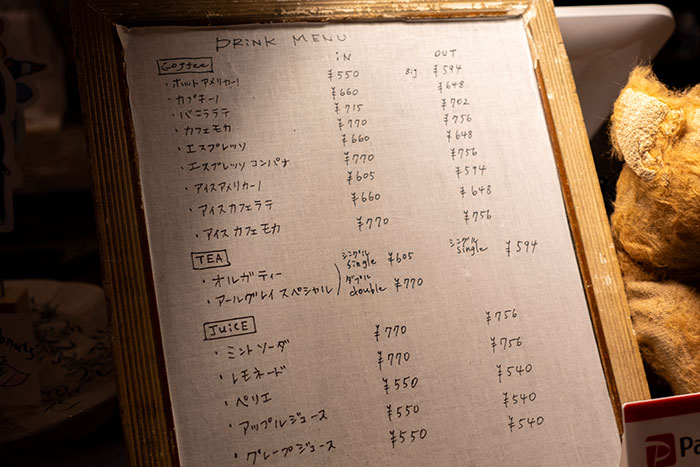 DRINK MENU
IN OUT
Coffee
・ホットアメリカーノ ¥550 Big ¥594
・カプチーノ ¥660 ¥648
・バニララテ ¥715 ¥702
・カフェモカ ¥770 ¥756
・エスプレッソ ¥660 ¥648
・エスプレッソ コンパナ ¥770 ¥756
・アイスアメリカーノ ¥605 ¥594
・アイスカフェラテ ¥660 ¥648
・アイスカフェモカ ¥770 ¥756
TEA
・オルガティー シングル single ¥605 シングル single ¥594
・アールグレイスペシャル ダブル double ¥770
JUICE
・ミントソーダ ¥770 ¥756
・レモネード ¥770 ¥756
・ペリエ ¥550 ¥540
・アップルジュース ¥550 ¥540
・グレープジュース ¥550 ¥540
Pa